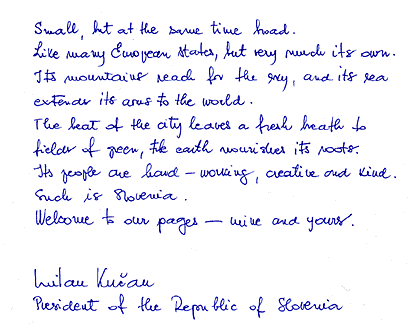 Small, but at the same time broad.
Like many European states, but very much its own.
Its mountains reach for the sky, and its sea
extends its arms to the world.
The beat of the city leaves a fresh breath to
fields of green, the earth nourishes its roots.
Its people are hard - working, creative and kind.
Such is Slovenia.
Welcome to our pages — mine and yours.
Milan Kučan
President of the Republic of Slovenia